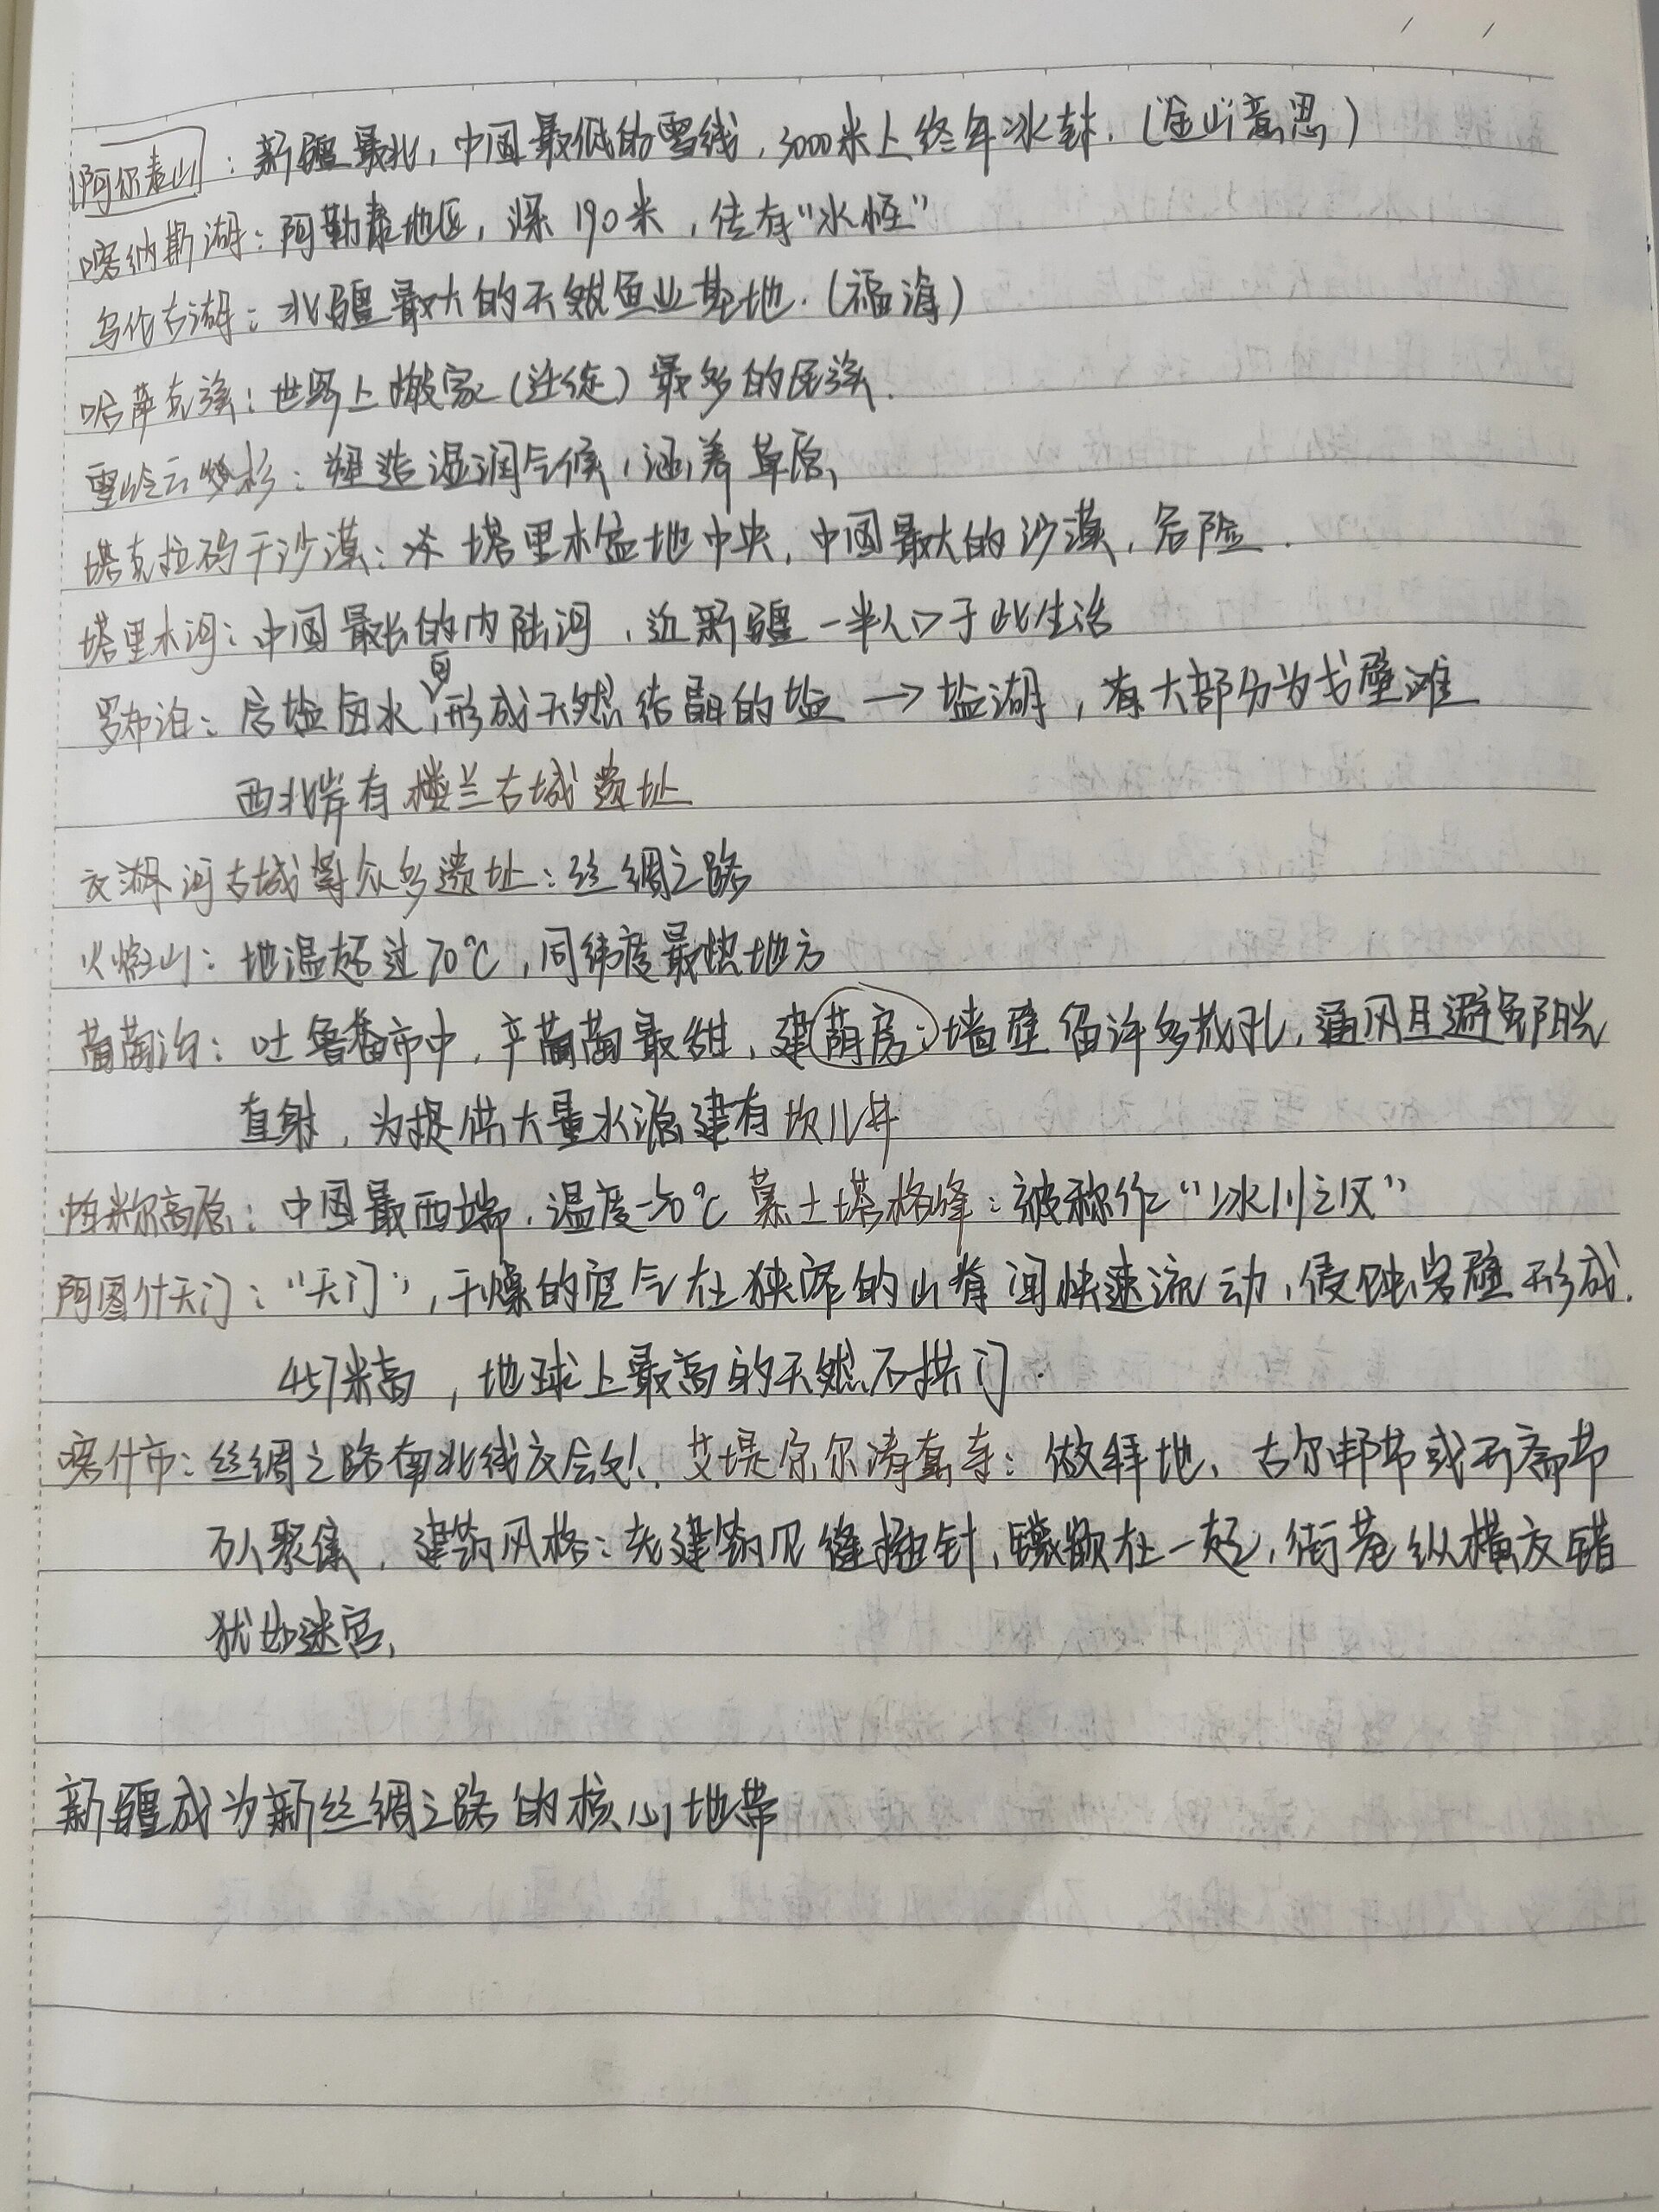 阿尔泰山：新疆最北，中国最低的雪线，3000米上终年冰封.（"金山"意思）
喀纳斯湖：阿勒泰地区，深190米，传有"水怪"
乌伦古湖：北疆最大的天然鱼业基地.（福海）
哈萨克族：世界上搬家（迁徙）最多的民族.
雪岭云杉：塑造湿润气候，涵养草原，
塔克拉玛干沙漠：塔里木盆地中央，中国最大的沙漠，危险.
塔里木河：中国最长的内陆河，近新疆一半人口于此生活
罗布泊：含盐卤水白形成天然结晶的盐→盐湖，有大部分为戈壁滩
西北岸有楼兰古城遗址
交河古城等众多遗址：丝绸之路
火焰山：地温超过70℃，同纬度最热地方
葡萄沟：吐鲁番市中，产葡萄最甜，建荫房：墙壁留许多方孔，通风且避免阳光
直射，为提供大量水源建有坎儿井
帕米尔高原：中国最西端，温度-50℃ 慕士塔格峰：被称作"冰川之父"
阿图什天门："天门"，干燥的空气在狭窄的山脊间快速流动，侵蚀岩壁形成.
457米高，地球上最高的天然石拱门.
喀什市：丝绸之路南北线交会处、艾提尕尔清真寺：做拜地、古尔邦节或开斋节
万人聚集，建筑风格：老建筑见缝插针，镶嵌在一起，街巷纵横交错
犹如迷宫，
新疆成为新丝绸之路的核心地带